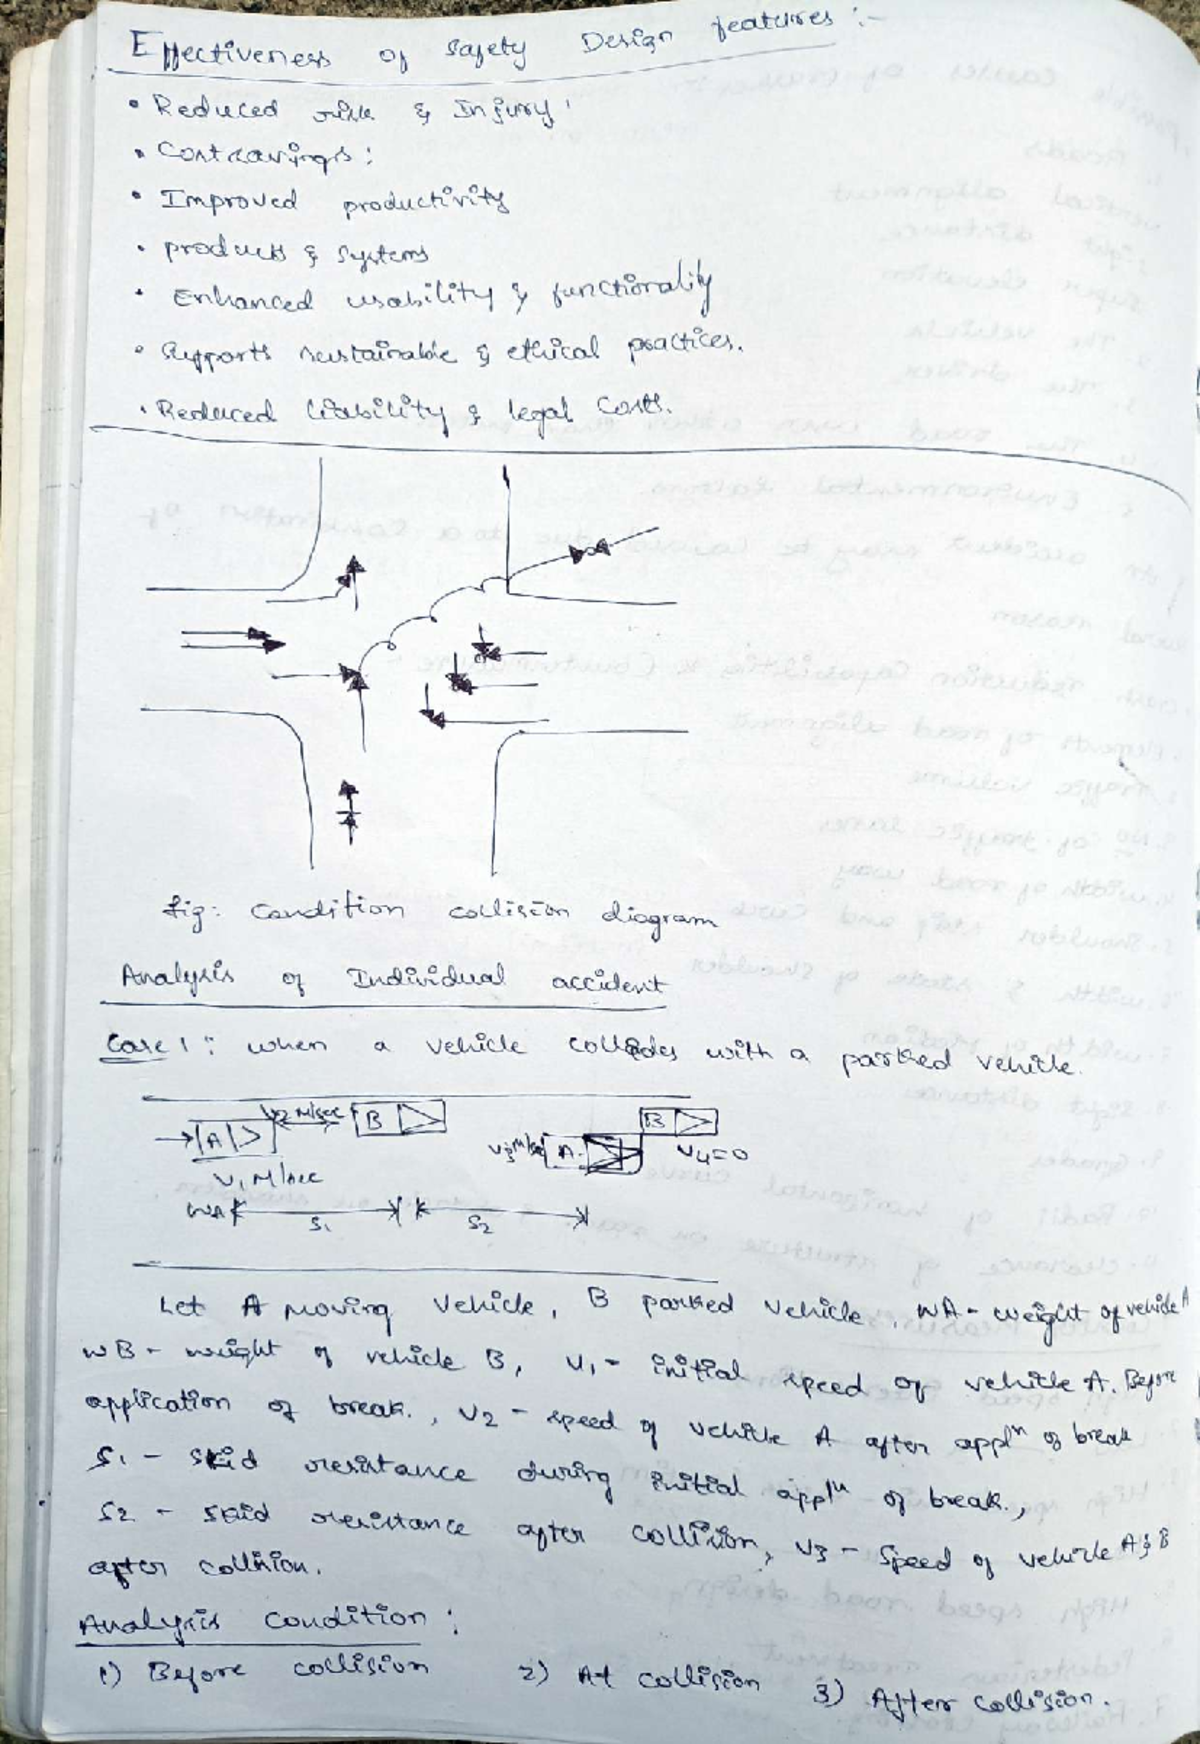 Effectiveness of Safety Design features :-
• Reduced risk & Injury'
• Cost savings :
• Improved productivity
• products & systems
• Enhanced usability & functionality
• Supports sustainable & ethical practices.
• Reduced liability & legal costs.
fig: Condition collision diagram
Analysis of Individual accident
Case 1 : when a vehicle collides with a parked vehicle.
V2 M/sec B B
A V3 M/sec A. V4=0
V1 M/sec
WA S1 S2
Let A moving vehicle, B parked vehicle, WA - weight of vehicle A
WB - weight of vehicle B, V1 - initial speed of vehicle A. Before
application of break., V2 - speed of vehicle A after appln of break
S1 - skid resistance during initial appln of break.,
S2 - skid resistance after collision, V3 - speed of vehicle A & B
after collision.
Analysis Condition :
1) Before collision 2) At collision 3) After collision.